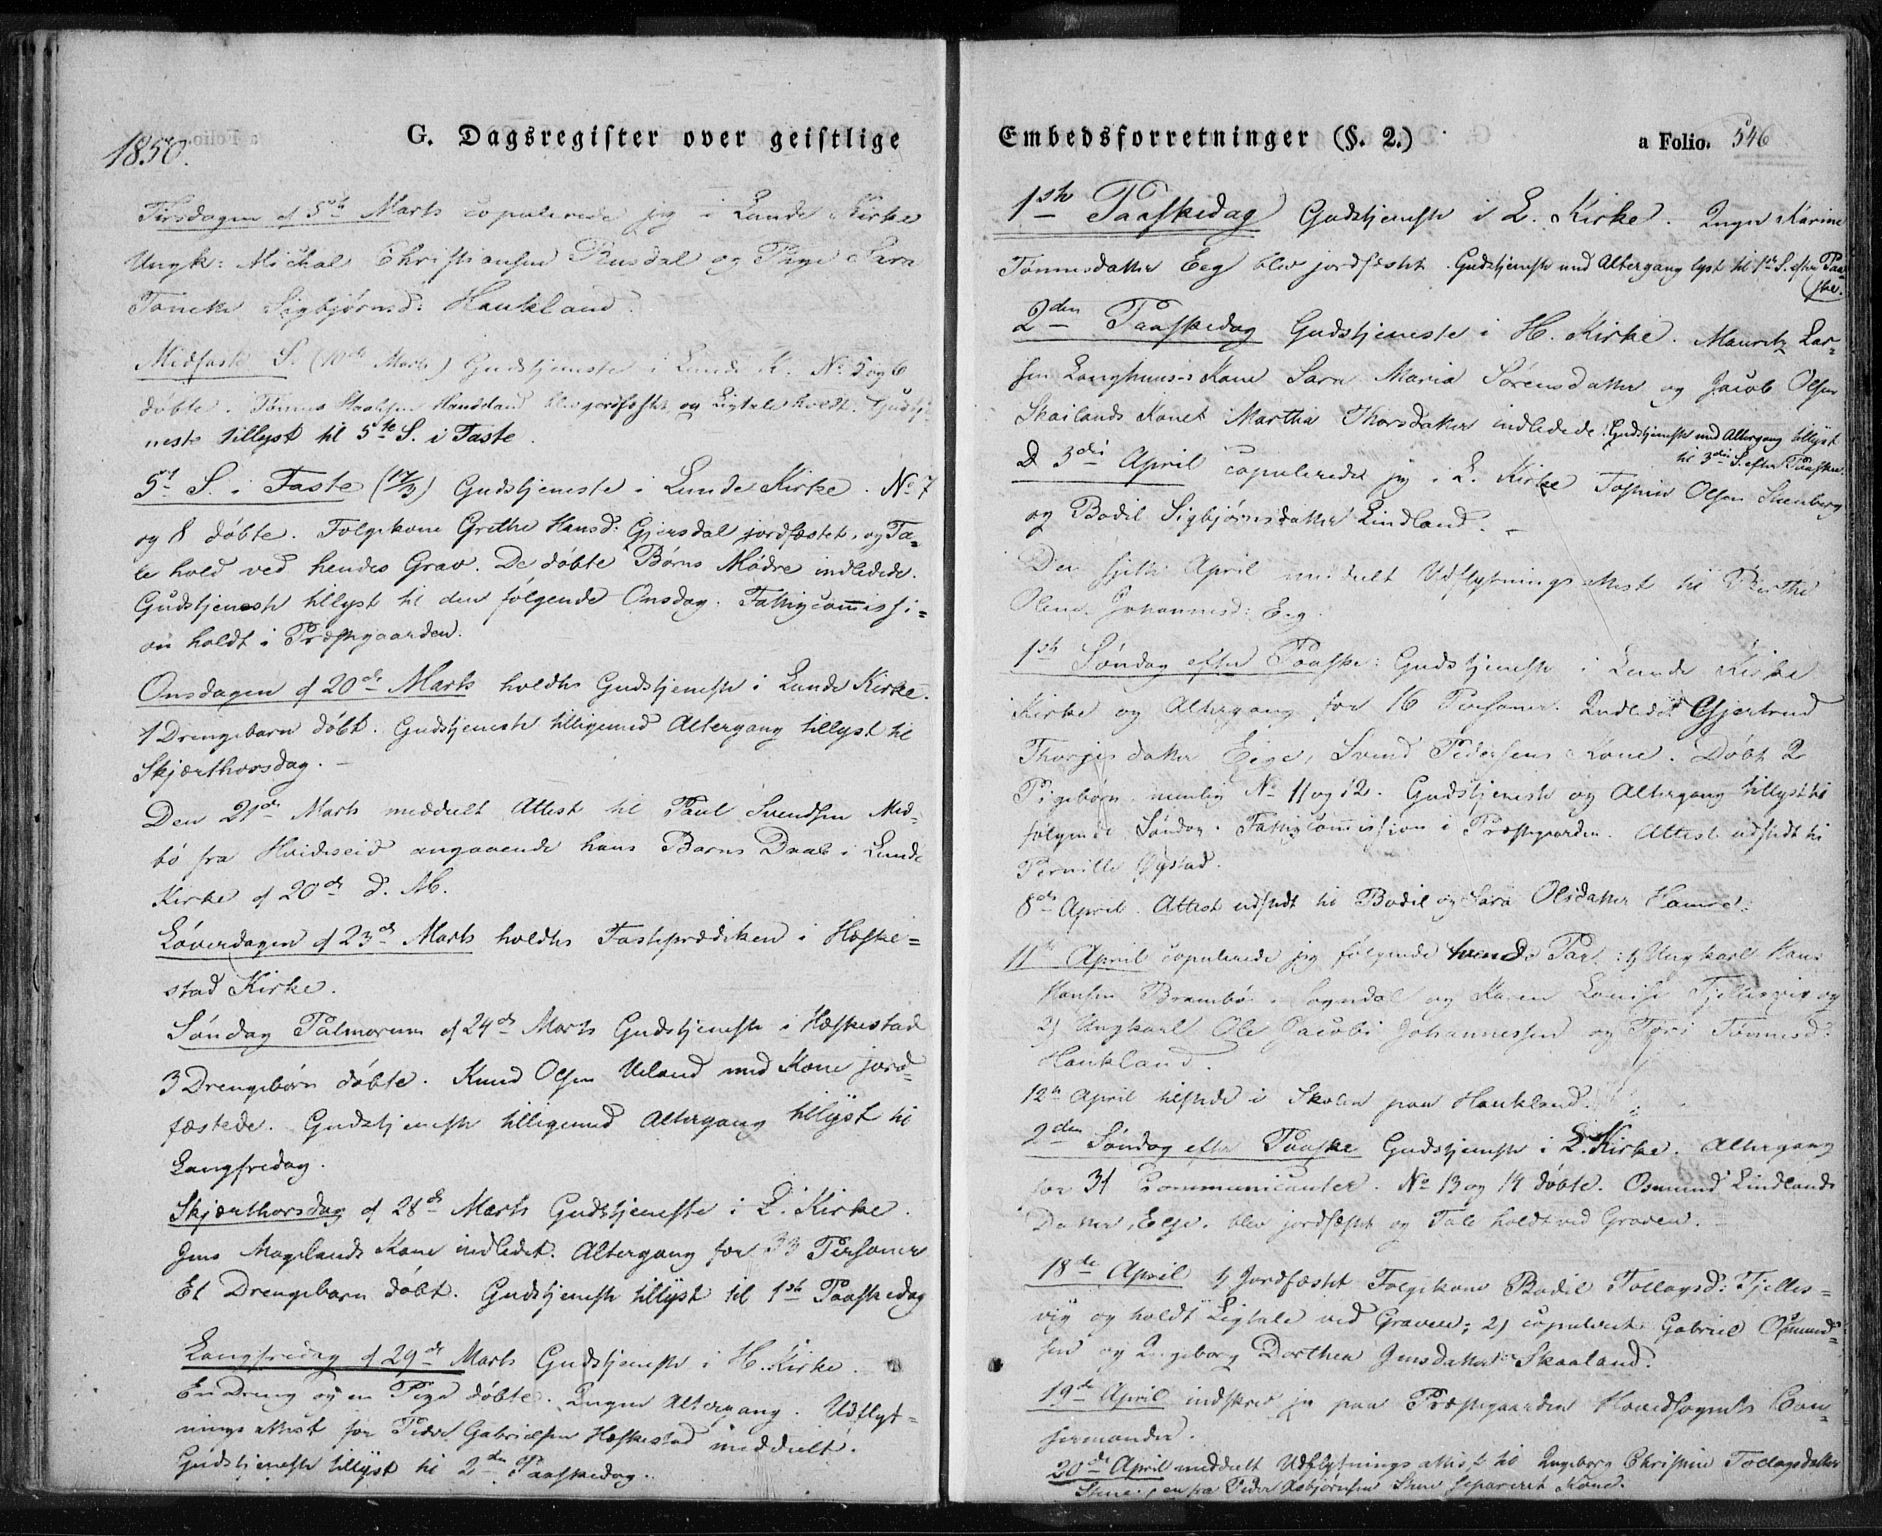 1850.
G. Dagsregister over geistlige
Tirsdagen d 5te Marts copulerede jeg i Lunde Kirke
Ungk: Michal Christiansen Rusdal og Pige Sara
Tonette Sigbjørnsd: Haukland.
Midfaste S. (10de Marts) Gudstjeneste i Lunde K. No 5 og 6
døbte. Tønnes Haukland blev jordfæstet og Ligtale holdt. Gudstje-
neste tillyst til 5te S. i Faste.
5te S. i Faste (17/3) Gudstjeneste i Lunde Kirke. No 7
og 8 døbte. Folgekone Grethe Hansd: Gjersdal jordfæstet, og Ta-
le hold ved hendes Grav. De døbte Børns Mødre indledede.
Gudstjeneste tillyst til den følgende Onsdag. Fattigcommissi-
on holdt i Præstgaarden.
Onsdagen d 20de Marts holdtes Gudstjeneste i Lunde Kirke.
1 Drengebarn døbt. Gudstjeneste tilligemed Altergang tillyst til
Skjærthorsdag. -
Den 21de Marts meddeelt Attest til Paul Svendsen Mid-
bø fra Hvideseid angaaende hans Barns Daab i Lunde
Kirke d 20de d. M.
Løverdagen d 23de Marts holdtes Fasteprædiken i Hæske-
stad Kirke.
Søndag Palmarum d 24de Marts Gudstjeneste i Hæskestad
3 Drengebørn døbte. Knud Olsen Ueland med Kone jord-
fæstede. Gudstjeneste tilligemed Altergang tillyst til
Langfredag.
Skjærthorsdag d 28de Marts Gudstjeneste i L. Kirke.
Jens Mogelands Kone indledet. Altergang for 33 Personer
Et Drengebarn døbt. Gudstjeneste tillyst til 1ste Paaskedag
Langfredag d 29de Marts Gudstjeneste i H. Kirke.
En Dreng og en Pige døbte. Ingen Altergang. Udflyt-
nings attest for Peder Gabrielsen Hæskestad meddeelt.
Gudstjeneste tillyst til 2den Paaskedag.
Embedsforretninger (§. 2.)
a Folio. 546
1ste Paaskedag Gudstjeneste i L. Kirke. Karine
Tønnesdatter Eeg blev jordfæstet. Gudstjeneste med Altergang lyst til 1ste S. efter Paa-
ske.
2den Paaskedag Gudstjeneste i H. Kirke. Mauritz Lar-
sen Langhuus's Kone Sara Maria Sørensdatter og Jacob Olsen
Skailands Kone Martha Thorsdatter indledede. Gudstjeneste med Altergang tillyst
til 3die S. efter Paaske.
D 3die April copulerede jeg i L. Kirke Olsen Steenberg
og Bodil Sigbjørnsdatter Lindland. -
Den sjette April meddeelt Udflytnings attest til Berthe
Olene Johannesd: Eeg.
1ste Søndag efter Paaske: Gudstjeneste i Lunde Kirke
Kirke og Altergang for 16 Personer. Indledet Gjertrud
datter Eige, Svend Pedersens Kone. Døbt 2
Pigebørn nemlig No 11 og 12. Gudstjeneste og Altergang tillyst til
følgende Søndag. Fattigcommission i Præstgaarden. Attest udstedt til
Pernille Øgstad.
8de April. Attest udstedt til Bodil og Sara Olsdatter
11te April copulerede jeg følgende tvende Par: 1) Ungkarl Hans
Hansen Brambø i Sogndal og Karen Louise Fjellesvig og
2) Ungkarl Ole Jacob Johannessen og Tønnesd:
Haukland.
12te April tilstede i Skolen paa Haukland.
2den Søndag efter Paaske Gudstjeneste i L. Kirke. Altergang
for 31 Communicanter. No 13 og 14 døbte. Osmund Lindlands
Datter, Else, blev jordfæstet og Tale holdt ved Graven.
18de April 1) Jordfæstet Folgekone Bodil Tollagsd: Fjelles-
vig og holdt Ligtale ved Graven; 2) copuleret Gabriel Osmund-
sen og Ingeborg Dorthea Jensdatter Skaaland.
19de April indskrev jeg paa Præstgaarden Hovedsognets Con-
firmander.
20de April meddeelt Udflytnings attest til Ingeborg Christine Tollagsdatter
Peder Asbjørnsen Steene separeret Kone.